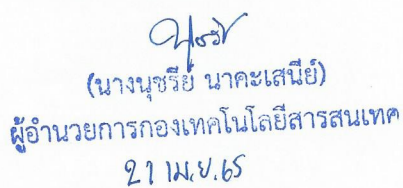 (นางนุชรีย์ นาคะเสนีย์)
ผู้อำนวยการกองเทคโนโลยีสารสนเทศ
21 เม.ย.65